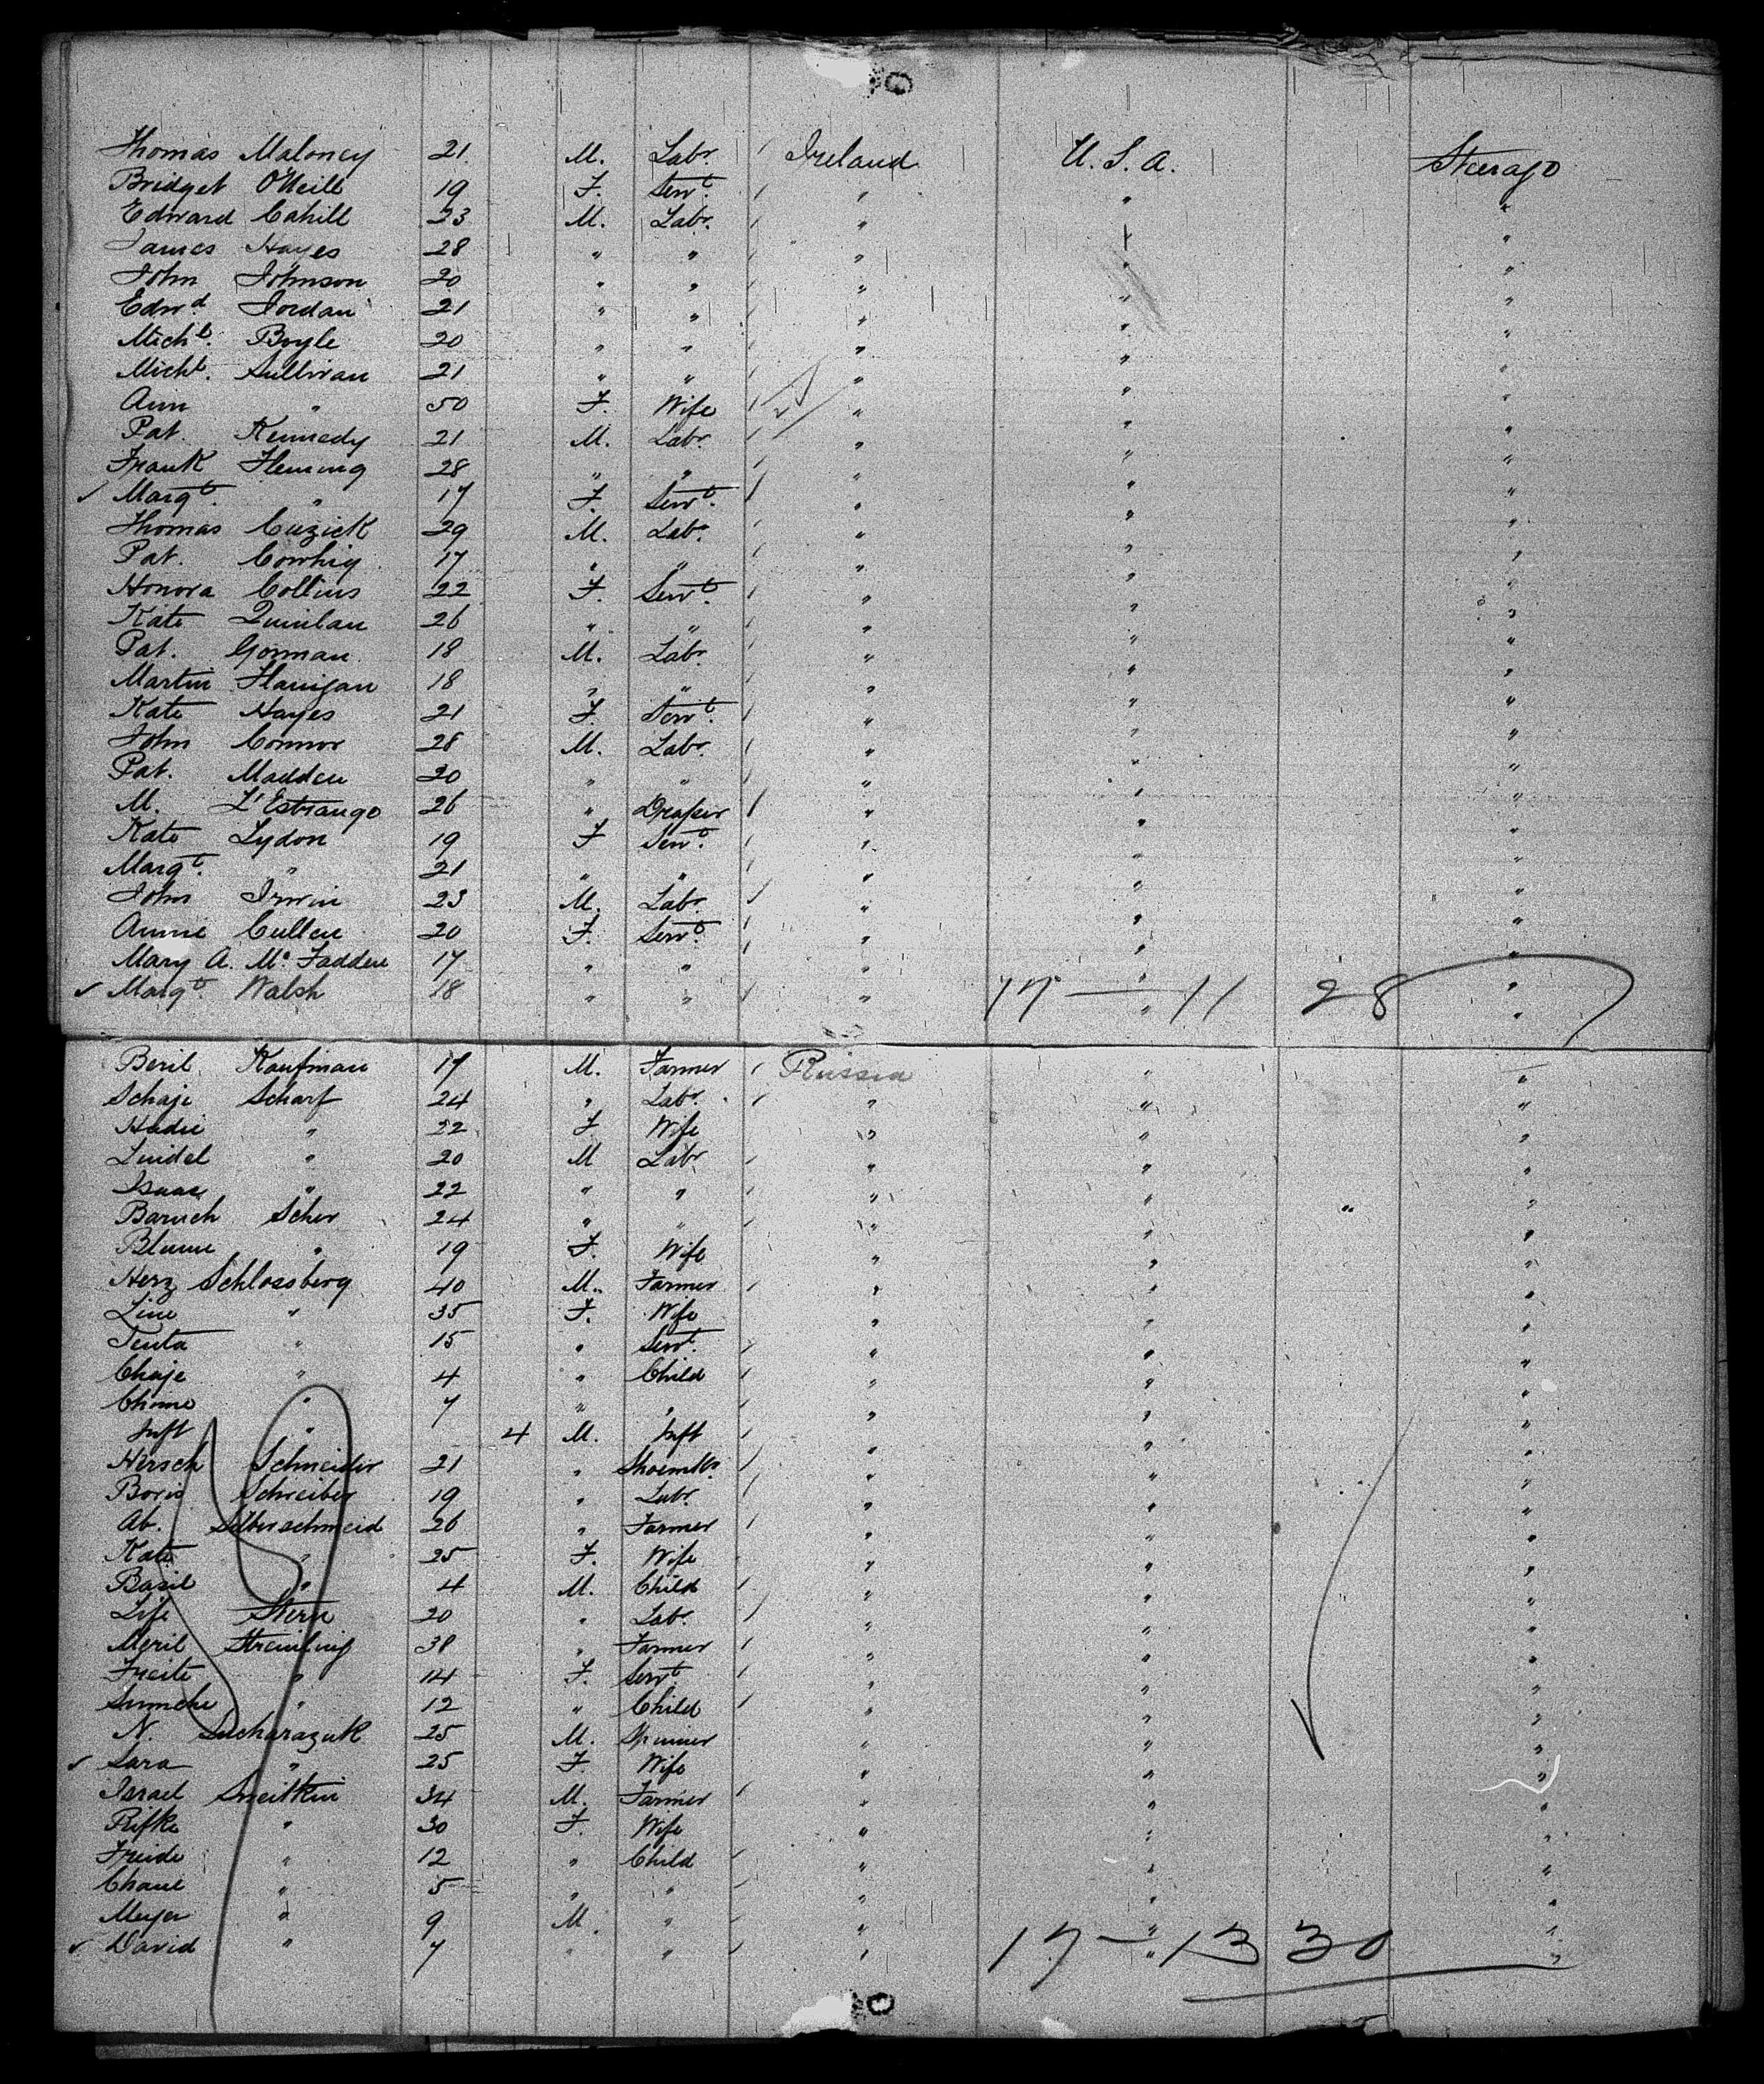 Thomas Maloney 21 M. Labr. Ireland U.S.A. Steerage
Bridget O'Neill 19 F. Servt. " " "
Edward Cahill 23 M. Labr. " " "
James Hayes 28 " " " " "
John Johnson 20 " " " " "
Edwd. Jordan 21 " " " " "
Michl. Boyle 20 " " " " "
Michl. Sullivan 21 " " " " "
Ann " 50 F. Wife " " "
Pat. Kennedy 21 M. Labr. " " "
Frank Fleming 28 " " " " "
✓ Margt. " 17 F. Servt. " " "
Thomas Cuzick 29 M. Labr. " " "
Pat. Cowhig 17 " " " " "
Honora Collins 22 F. Servt. " " "
Kate Quinlan 26 " " " " "
Pat. Gorman 18 M. Labr. " " "
Martin Flanigan 18 " " " " "
Kate Hayes 21 F. Servt. " " "
John Connor 28 M. Labr. " " "
Pat. Madden 20 " " " " "
M. L'Estrange 26 " Draper " " "
Kate Lydon 19 F Servt. " " "
Margt. " 21 " " " " "
John Irwin 23 M. Labr. " " "
Annie Cullen 20 F. Servt. " " "
Mary A. Mc Fadden 17 " " " " "
✓ Margt. Walsh 18 " " " " "
17 — 11 28
Beril Kaufman 17 M. Farmer Russia " "
Schaje Scharf 24 " Labr. " " "
Hadie " 22 F. Wife " " "
Luidel " 20 M Labr. " " "
Isaac " 22 " " " " "
Baruch Scher 24 " " " " "
Blume " 19 F. Wife " " "
Herz Schlossberg 40 M. Farmer " " "
Line " 35 F. Wife " " "
Tenta " 15 " Servt. " " "
Chaje " 4 " Child " " "
Chime " 7 " " " " "
Inft " 4 M. Inft " " "
Hirsch Schneider 21 " Shoemkr. " " "
Boris Schreiber 19 " Labr. " " "
Ab. Silberschmeid 26 " Farmer " " "
Kate " 25 F. Wife " " "
Basil " 4 M. Child " " "
Life Stern 20 " Labr. " " "
Meril 38 " Farmer " " "
Freite " 14 F. Servt. " " "
Sumche " 12 " Child " " "
N. Sucharazuk 25 M. Spinner " " "
✓ Sara " 25 F. Wife " " "
Israel Sneitkin 34 M. Farmer " " "
Rifke " 30 F. Wife " " "
Freide " 12 " Child " " "
Chane " 5 " " " " "
Meyer " 9 M. " " " "
✓ David " 7 " " " " "
17 — 13 30